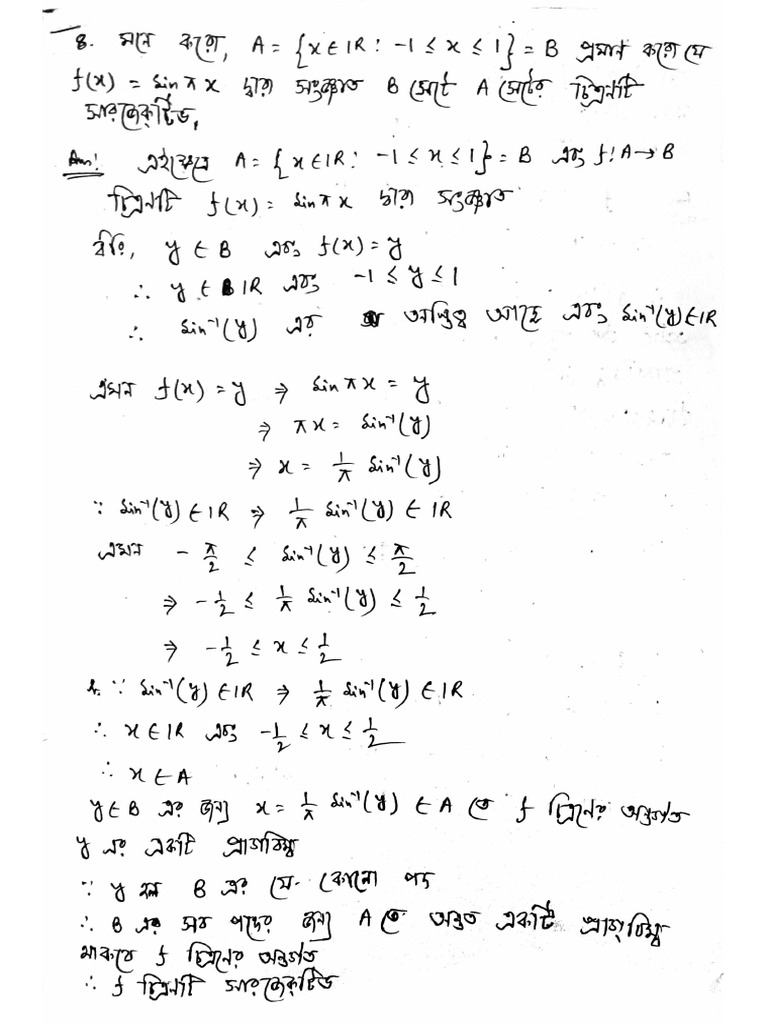 8. মনে করো, A = {x ∈ IR : -1 ≤ x ≤ 1} = B প্রমাণ করো যে
f(x) = sin π x দ্বারা সংজ্ঞাত B সেটে A সেটের চিত্রণটি
সারজেক্টিভ,
Ans! এইক্ষেত্রে A = {x ∈ IR : -1 ≤ x ≤ 1} = B এবং f: A → B
চিত্রণটি f(x) = sin π x দ্বারা সংজ্ঞাত
ধরি, y ∈ B এবং f(x) = y
∴ y ∈ IR এবং -1 ≤ y ≤ 1
∴ sin⁻¹(y) এর অস্তিত্ব আছে এবং sin⁻¹(y) ∈ IR
এমন f(x) = y ⇒ sin π x = y
⇒ πx = sin⁻¹(y)
⇒ x = 1/π sin⁻¹(y)
∵ sin⁻¹(y) ∈ IR ⇒ 1/π sin⁻¹(y) ∈ IR
এমন - π/2 ≤ sin⁻¹(y) ≤ π/2
⇒ -1/2 ≤ 1/π sin⁻¹(y) ≤ 1/2
⇒ -1/2 ≤ x ≤ 1/2
∵ sin⁻¹(y) ∈ IR ⇒ 1/π sin⁻¹(y) ∈ IR
∴ x ∈ IR এবং -1/2 ≤ x ≤ 1/2
∴ x ∈ A
y ∈ B এর জন্য x = 1/π sin⁻¹(y) ∈ A তে f চিত্রণের অন্তর্গত
y এর একটি প্রাগবিম্ব
∵ y হল B এর যে কোনো পদ
∴ B এর সব পদের জন্য A তে অন্তত একটি প্রাগ্‌বিম্ব
থাকবে f চিত্রণের অন্তর্গত
∴ f চিত্রণটি সারজেক্টিভ